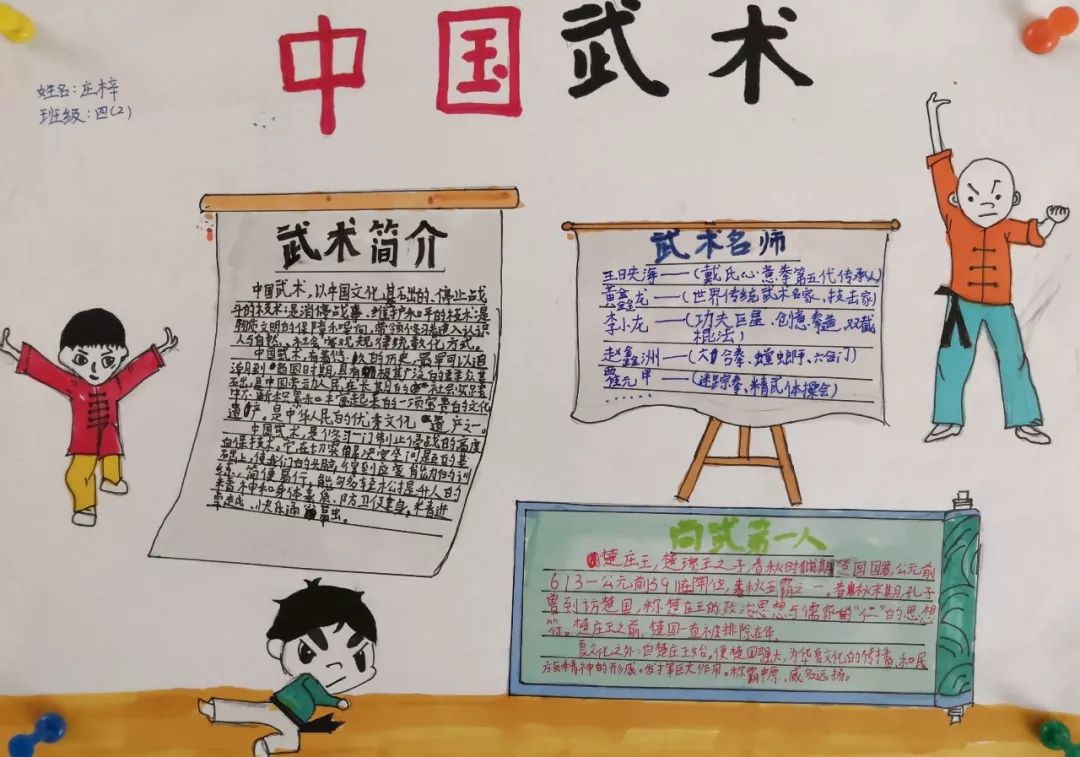 中国武术
姓名:庄梓
班级:四(2)
武术简介
中国武术,以中国文化
斗的技术是消停战事、维护和平的技术是
物质文明的保障和导向,带领修习者进入认识
人与自然、社会客观规律
中国武术,有着悠久的历史,最早可以追
的文化
遗产,是中华人民的优秀文化遗产之一。
中国武术,是修习一门制止侵战的高度
自保技术。它在切实解决安全问题的基
础上,使我们的头脑,得到应变能力的训
练、简便易行,能够轻松提升人的
精神和身体素质、防卫健身
武术名师
王映海——(戴氏心意拳第五代传承人)
黄鑫龙——(世界传统武术名家、技击家)
李小龙——(功夫巨星、创意拳道、双截
棍法)
赵鑫洲——(六合拳、螳螂、六合门)
霍元甲——(迷踪拳、精武体操会)
......
尚武第一人
楚庄王,楚穆王之子,春秋时期楚国国君,公元前
613-公元前591在位,春秋五霸之一。春秋末期,孔子
曾到访楚国,称楚庄王的政治思想与儒家的“仁”的思想
符。楚庄王之前,楚国一直被排除在
夏文化之外:自楚庄王始,使楚国强大,为华夏文化的传播,和民
族精神的形成。发挥巨大作用。称霸中原,威名远扬。